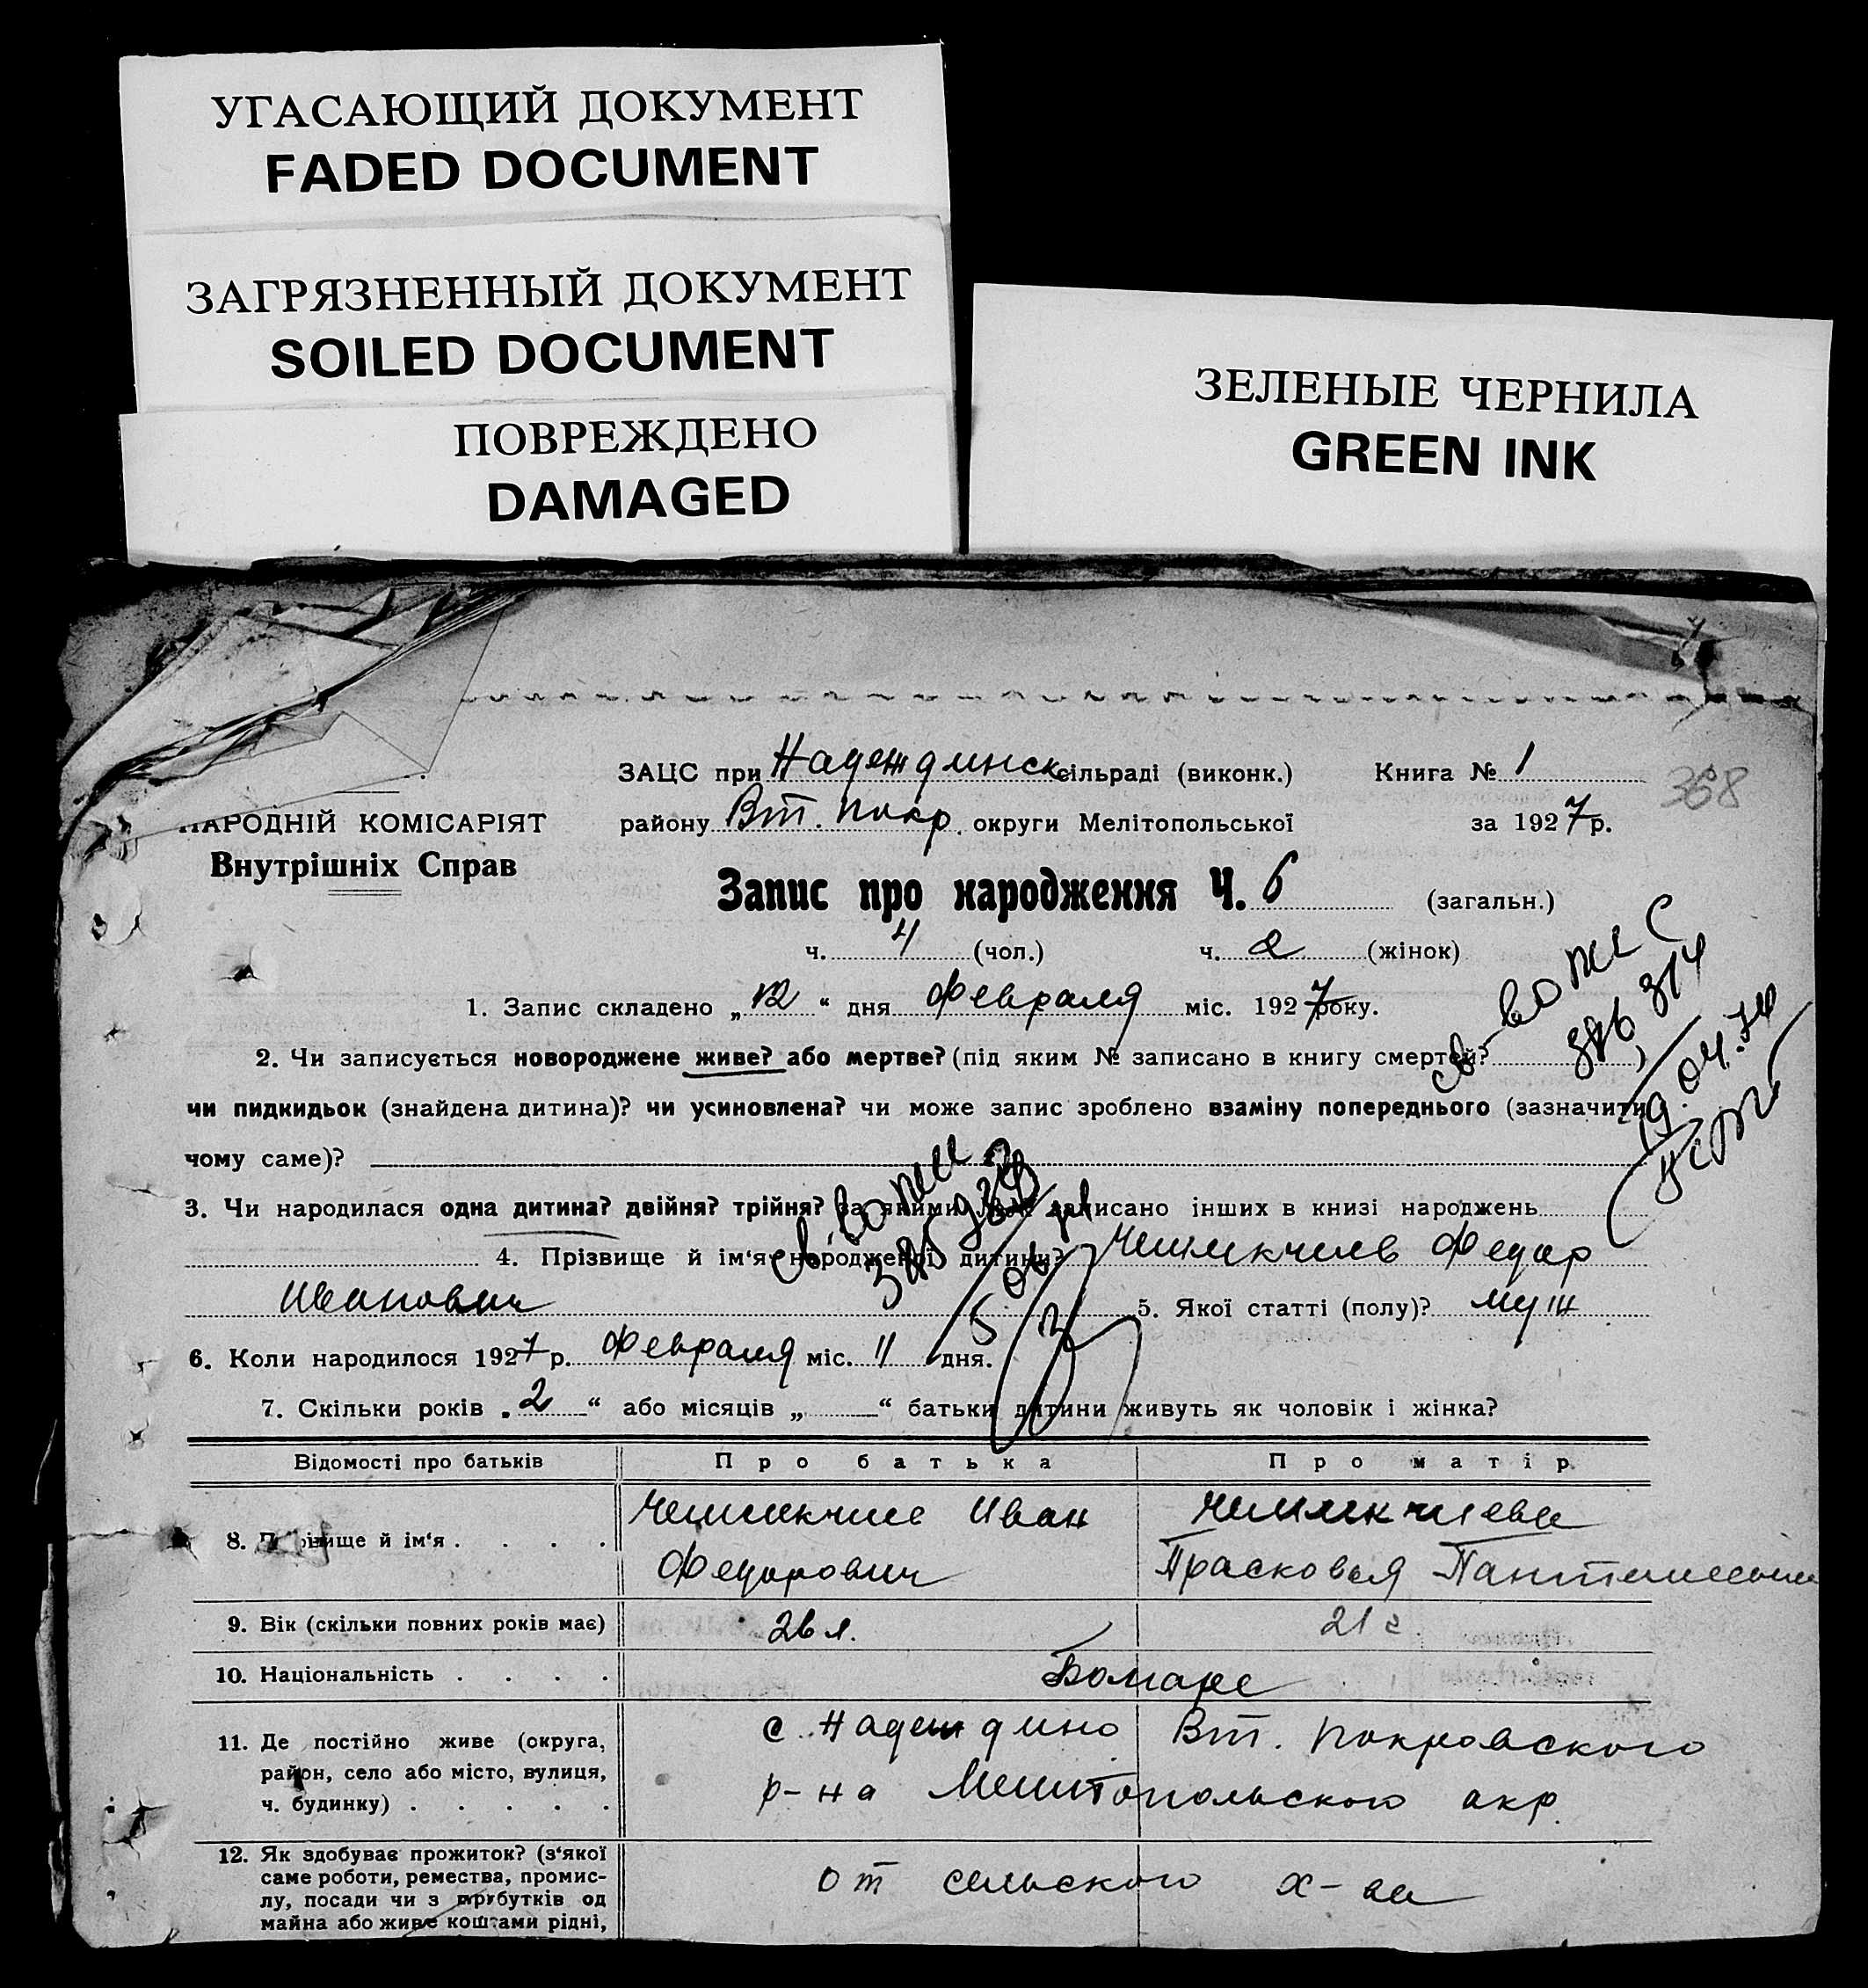 УГАСАЮЩИЙ ДОКУМЕНТ
FADED DOCUMENT
ЗАГРЯЗНЕННЫЙ ДОКУМЕНТ
SOILED DOCUMENT
ПОВРЕЖДЕНО
DAMAGED
ЗЕЛЕНЫЕ ЧЕРНИЛА
GREEN INK
ЗАЦС при Надеждинск сільраді (виконк.) Книга № 1
368
НАРОДНІЙ КОМІСАРІЯТ
Внутрішніх Справ
району Вт. Покр. округи Мелітопольської за 1927 р.
Запис про народження Ч. 6 (загальн.)
ч. 4 (чол.) ч. 2 (жінок)
1. Запис складено „12“ дня Февраля міс. 1927 року.
2. Чи записується новороджене живе? або мертве? (під яким № записано в книгу смертей?
чи пидкидьок (знайдена дитина)? чи усиновлена? чи може запис зроблено взаміну попереднього (зазначити
чому саме)?
св-во
19.04.74
3. Чи народилася одна дитина? двійня? трійня? за якими записано інших в книзі народжень
4. Прізвище й ім'я народженої дитини? Чешмекчиев Федор
Иванович 5. Якої статті (полу)? муж
6. Коли народилося 1927 р. Февраля міс. 11 дня.
7. Скільки років „2“ або місяців „ “ батьки дитини живуть як чоловік і жінка?
Відомості про батьків Про батька Про матір
8. Прізвище й ім'я . . . . Чешмекчиев Иван Чешмекчиева
Федорович Прасковья
9. Вік (скільки повних років має) 26 л. 21 г.
10. Національність . . . . Болгаре
11. Де постійно живе (округа, с. Надеждино Вт. Покровского
район, село або місто, вулиця, р-на Мелитопольского окр.
ч. будинку) . . . . .
12. Як здобуває прожиток? (з'якої от сельского х-ва
саме роботи, ремества, промис-
лу, посади чи з прибутків од
майна або живе коштами рідні,